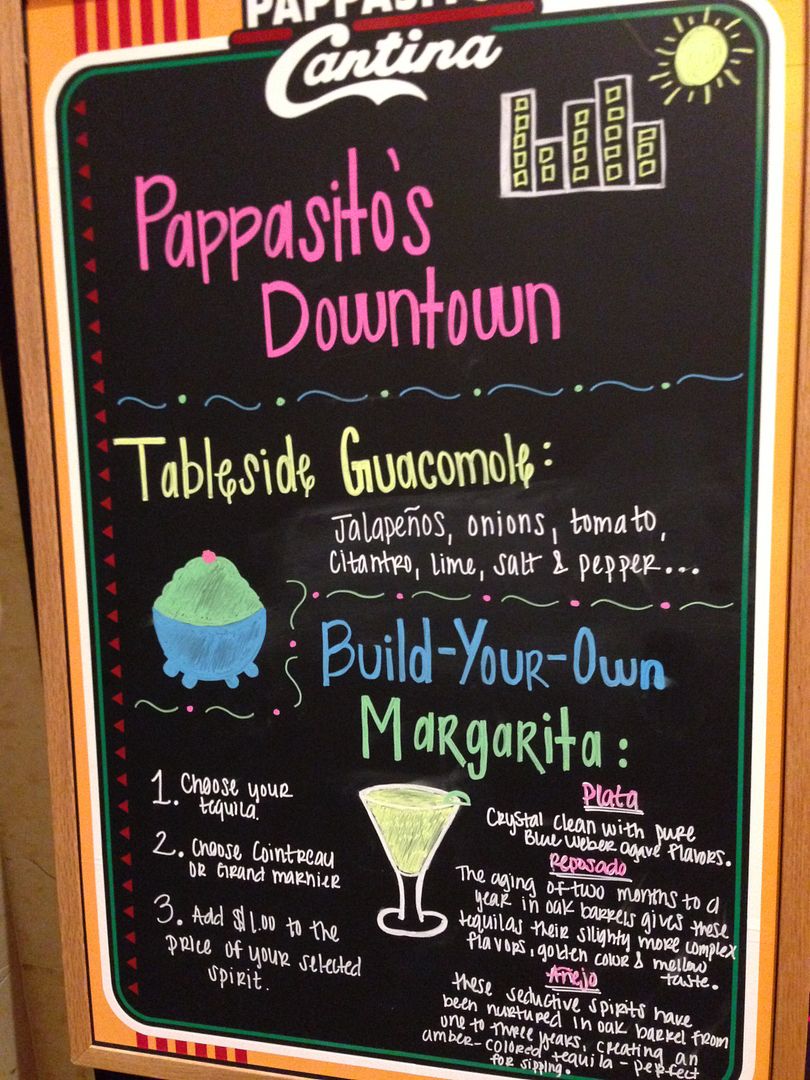 PAPPASITO'S
Cantina
Pappasito's
Downtown
Tableside Guacomole:
Jalapeños, onions, tomato,
cilantro, lime, salt & pepper...
Build-Your-Own
Margarita:
1. Choose your
tequila.
2. Choose Cointreau
or Grand Marnier
3. Add $1.00 to the
price of your selected
spirit.
Plata
Crystal clean with pure
Blue Weber agave flavors.
Reposado
The aging of two months to a
year in oak barrels gives these
tequilas their slightly more complex
flavors, golden color & mellow
taste.
Añejo
these seductive spirits have
been nurtured in oak barrel from
one to three years, creating an
amber-colored tequila - perfect
for sipping.